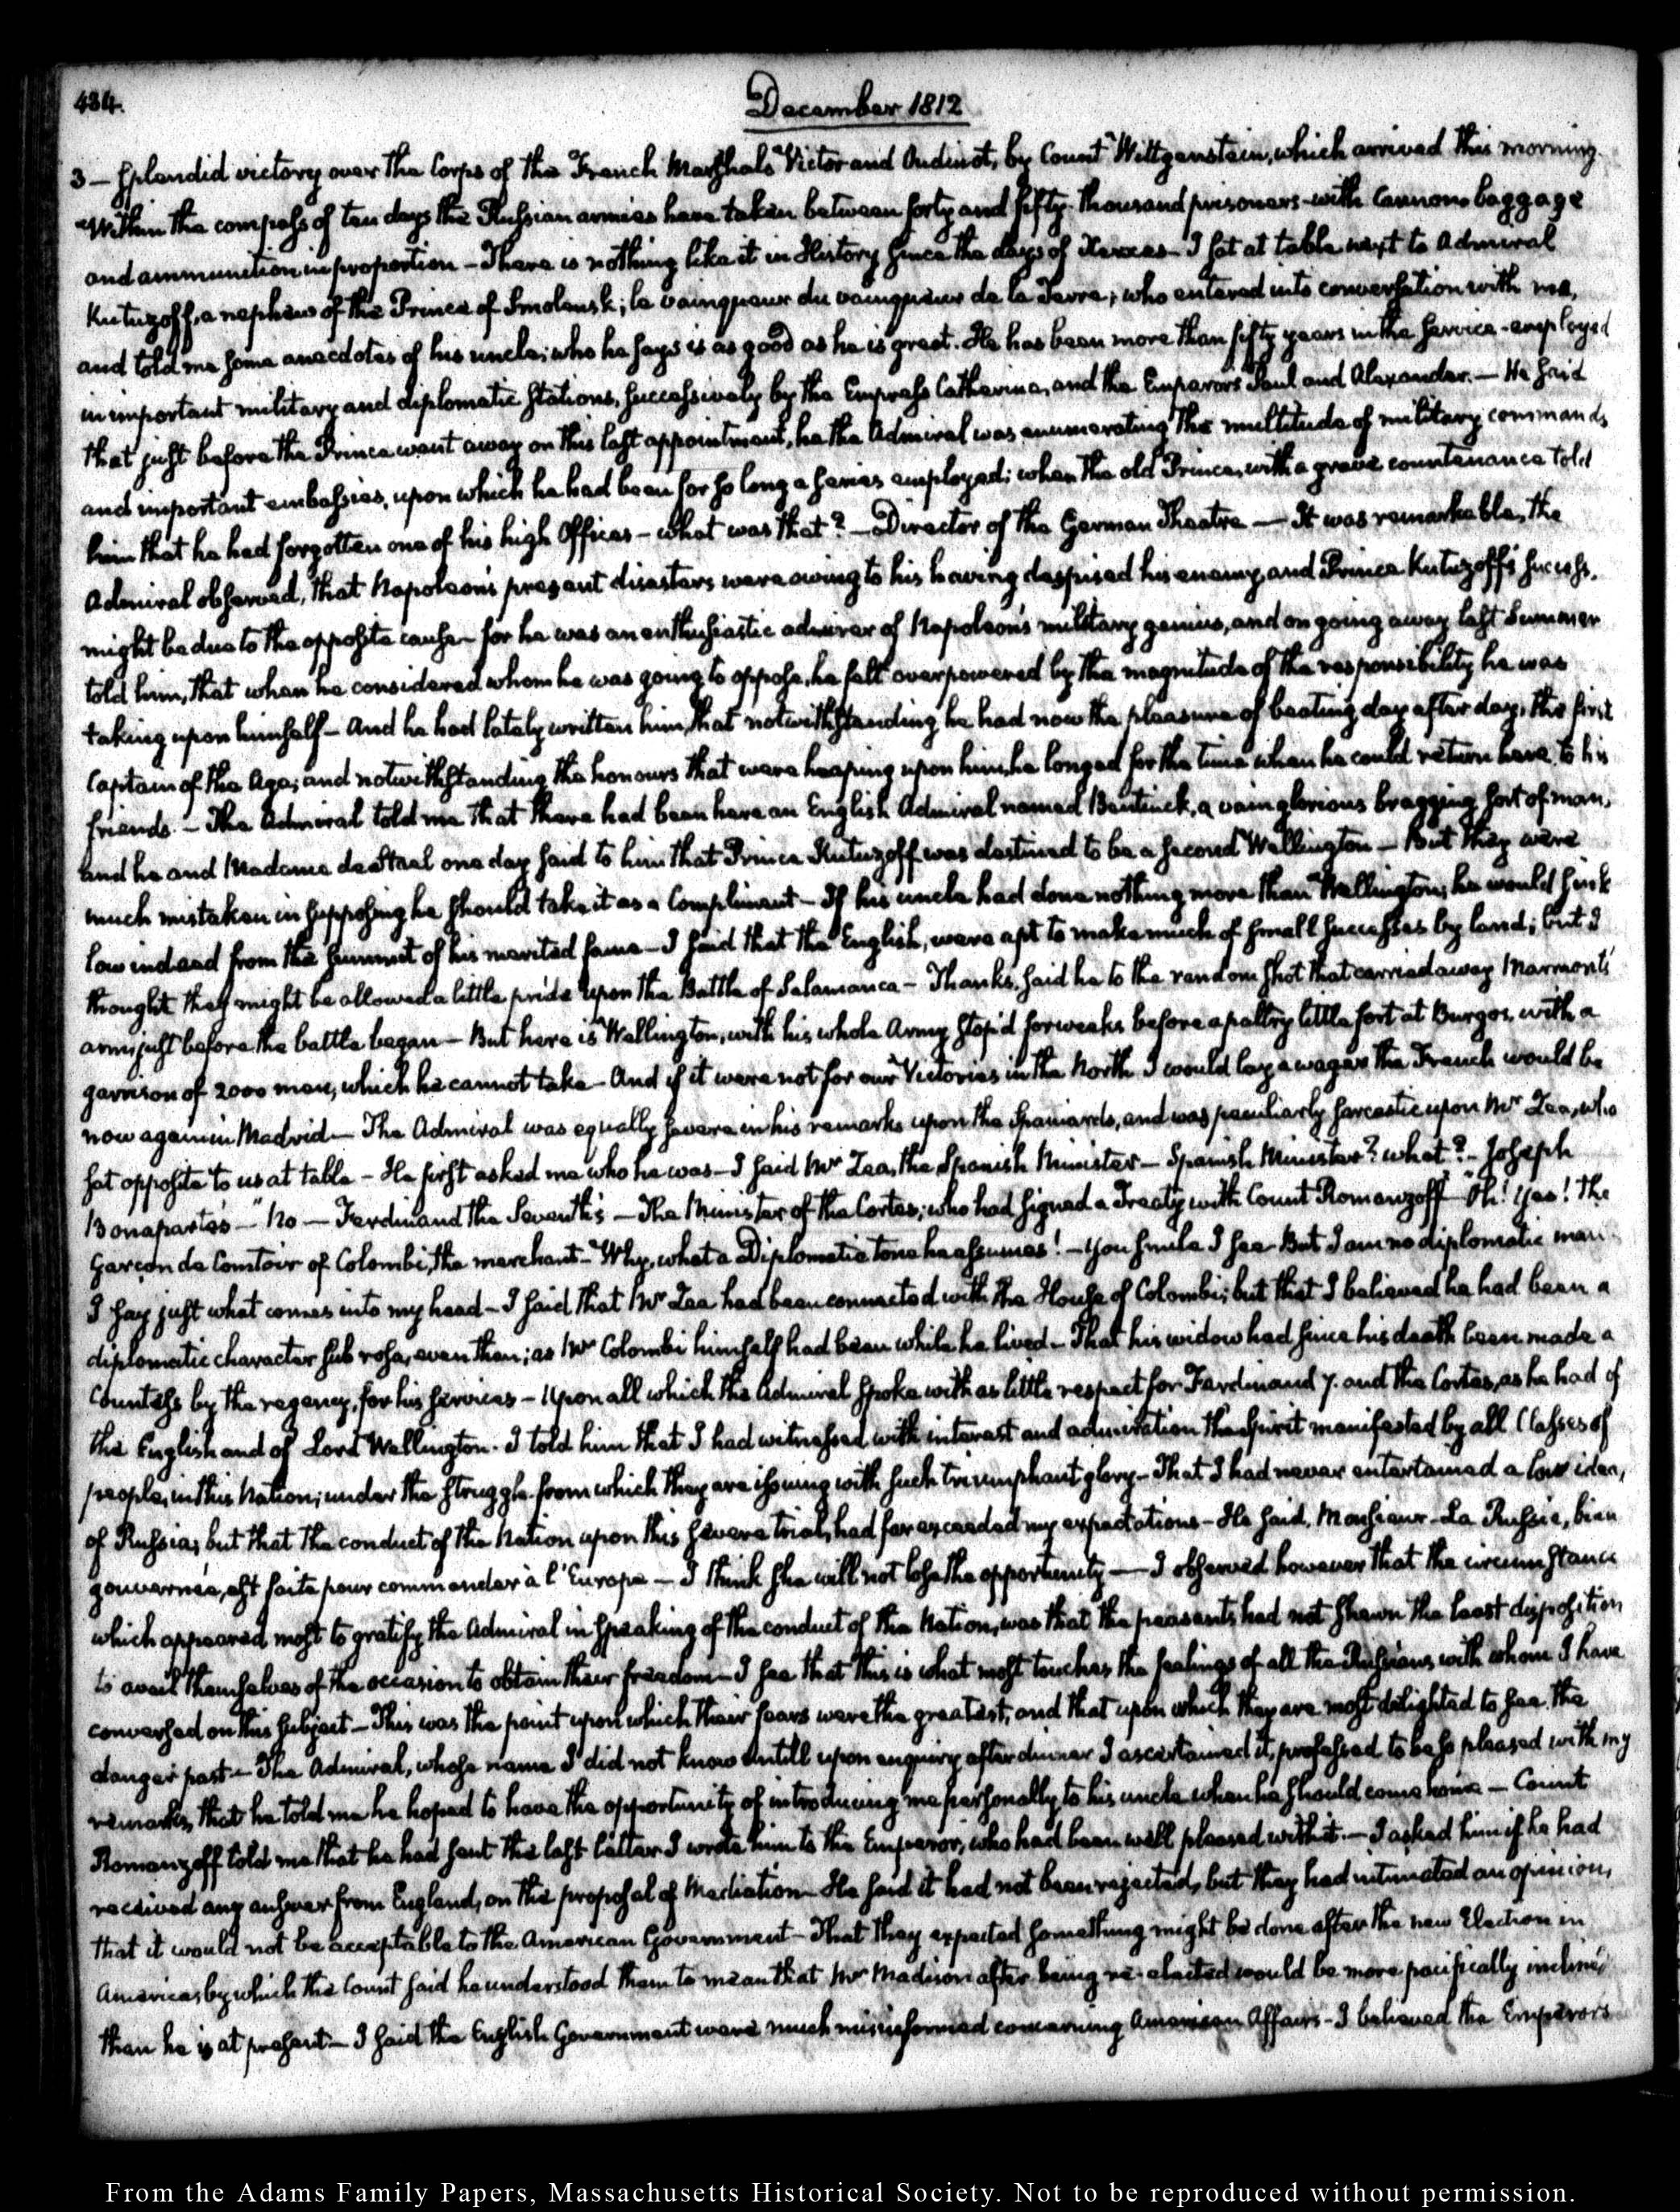 434.
December 1812
3 — Splendid victory over the Corps of the French Marshals Victor and Oudinot, by Count Wittgenstein, which arrived this morning.
Within the compass of ten days the Russian armies have taken between forty and fifty thousand prisoners with Cannon baggage
and ammunition in proportion — There is nothing like it in History since the days of Xerxes — I sat at table next to Admiral
Kutuzoff, a nephew of the Prince of Smolensk; le vainqueur du vainqueur de la Terre; who entered into conversation with me,
and told me some anecdotes of his uncle; who he says is as good as he is great. He has been more than fifty years in the service - employed
in important military and diplomatic stations, successively by the Empress Catherine, and the Emperors Paul and Alexander. — He said
that just before the Prince went away on this last appointment, he the Admiral was enumerating the multitude of military commands
and important embassies, upon which he had been for so long a series employed; when the old Prince, with a grave countenance told
him that he had forgotten one of his high Offices — what was that? — Director of the German Theatre — It was remarkable, the
Admiral observed, that Napoleon's present disasters were owing to his having despised his enemy, and Prince Kutuzoff's success,
might be due to the opposite cause — for he was an enthusiastic admirer of Napoleon's military genius, and on going away last Summer
told him, that when he considered whom he was going to oppose, he felt overpowered by the magnitude of the responsibility he was
taking upon himself — And he had lately written him, that notwithstanding he had now the pleasure of beating day after day, the first
Captain of the Age; and notwithstanding the honours that were heaping upon him, he longed for the time when he could return here to his
friends. — The Admiral told me that there had been here an English Admiral named Bentinck, a vain glorious bragging sort of man,
and he and Madame de Stael one day said to him that Prince Kutuzoff was destined to be a second Wellington — But they were
much mistaken in supposing he should take it as a Compliment — If his uncle had done nothing more than Wellington, he would sink
low indeed from the summit of his merited fame — I said that the English, were apt to make much of small successes by land; but I
thought they might be allowed a little pride upon the Battle of Salamanca — Thanks, said he to the random shot that carried away Marmont's
arm just before the battle began — But here is Wellington, with his whole Army stop'd for weeks before a paltry little fort at Burgos, with a
garrison of 2000 men, which he cannot take — And if it were not for our Victories in the North I would lay a wager the French would be
now again in Madrid — The Admiral was equally severe in his remarks upon the Spaniards, and was peculiarly sarcastic upon Mr Zea, who
sat opposite to us at table — He first asked me who he was — I said Mr Zea, the Spanish Minister — Spanish Minister? what? — Joseph
Bonaparte's — "No — Ferdinand the Seventh's — The Minister of the Cortes; who had signed a Treaty with Count Romanzoff — "Oh! Yes! The
Garçon de Comtoir of Colombi, the merchant — Why, what a Diplomatic tone he assumes! — You smile I see — But I am no diplomatic man
I say just what comes into my head — I said that Mr Zea had been connected with the House of Colombi; but that I believed he had been a
diplomatic character sub rosa, even then; as Mr Colombi himself had been while he lived — That his widow had since his death been made a
Countess by the regency, for his services — Upon all which the Admiral spoke with as little respect for Ferdinand 7. and the Cortes, as he had of
the English and of Lord Wellington. I told him that I had witnessed with interest and admiration the spirit manifested by all Classes of
people, in this Nation; under the struggle from which they are issuing with such triumphant glory — That I had never entertained a low idea,
of Russia; but that the conduct of the Nation upon this severe trial, had far exceeded my expectations — He said, Monsieur — La Russie, bien
gouvernée, est faite pour commander à l'Europe — I think she will not lose the opportunity — I observed however that the circumstance
which appeared most to gratify the Admiral in speaking of the conduct of the Nation, was that the peasants had not shewn the least disposition
to avail themselves of the occasion to obtain their freedom — I see that this is what most touches the feelings of all the Russians with whom I have
conversed on this subject — This was the point upon which their fears were the greatest, and that upon which they are most delighted to see the
danger past — The Admiral, whose name I did not know untill upon enquiry after dinner I ascertained it, professed to be so pleased with my
remarks, that he told me he hoped to have the opportunity of introducing me personally to his uncle when he should come home — Count
Romanzoff told me that he had sent the last letter I wrote him to the Emperor, who had been well pleased with it. — I asked him if he had
received any answer from England, on the proposal of Mediation — He said it had not been rejected, but they had intimated an opinion,
that it would not be acceptable to the American Government — That they expected something might be done after the new Election in
America; by which the Count said he understood them to mean that Mr Madison after being re-elected would be more pacifically inclined
than he is at present — I said the English Government were much misinformed concerning American Affairs — I believed the Emperor's
From the Adams Family Papers, Massachusetts Historical Society. Not to be reproduced without permission.